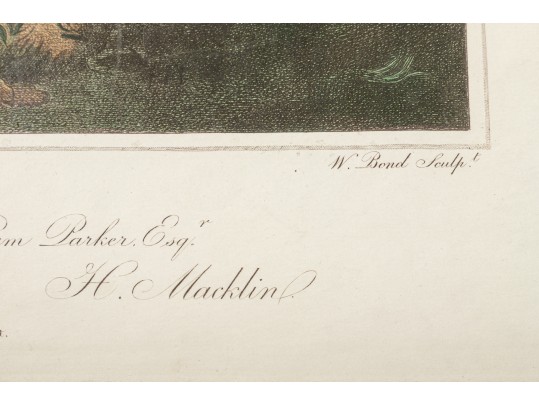 W. Bond Sculp.t
Parker. Esq.r
H. Macklin